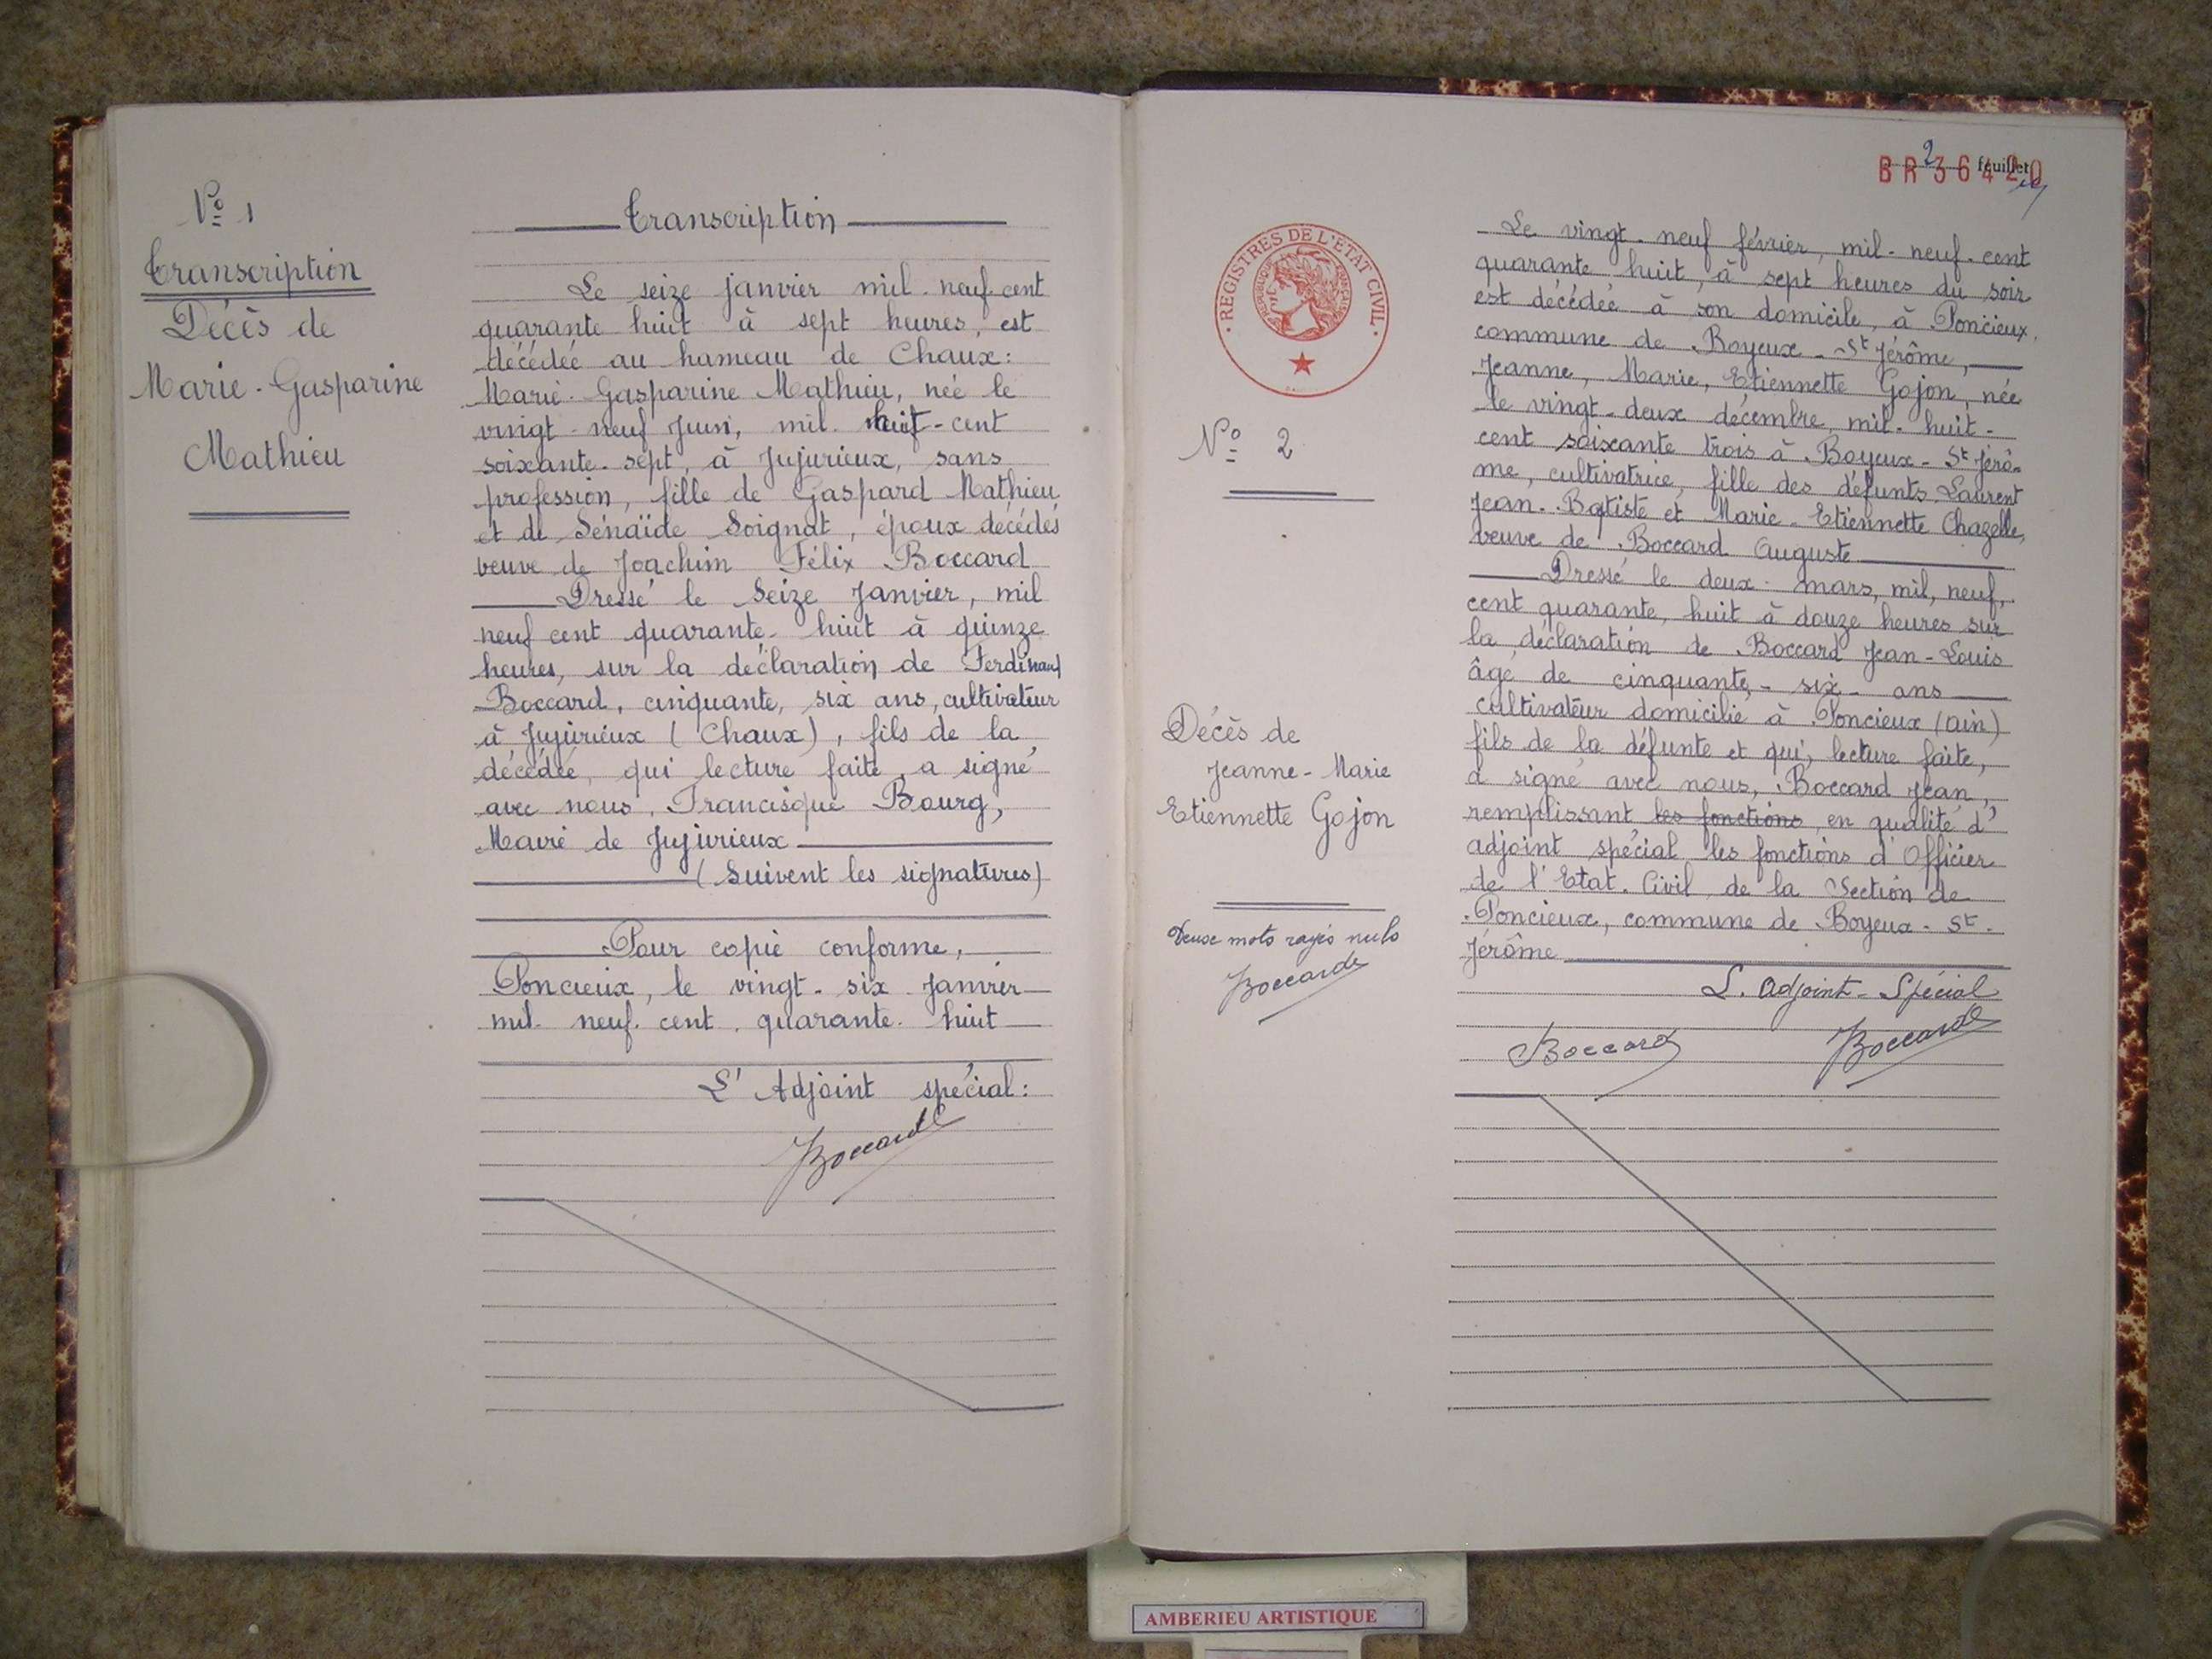 Nº 1
Transcription
Décès de
Marie-Gasparine
Mathieu
Transcription
Le seize janvier mil-neuf-cent
quarante huit à sept heures, est
décédée au hameau de Chaux:
Marie-Gasparine Mathieu, née le
vingt-neuf Juin, mil huit-cent
soixante-sept, à Jujurieux, sans
profession, fille de Gaspard Mathieu
et de Sénaïde Soignat, époux décédés
veuve de Joachim Félix Boccard
Dressé le Seize Janvier, mil
neuf cent quarante-huit à quinze
heures, sur la déclaration de Ferdinand
Boccard, cinquante, six ans, cultivateur
à Jujurieux (Chaux), fils de la
décédée, qui lecture faite, a signé
avec nous, Francisque Bourg,
Maire de Jujurieux
(Suivent les signatures)
Pour copie conforme,
Poncieux, le vingt-six Janvier
mil-neuf-cent quarante-huit
L'Adjoint spécial:
Boccard
2 feuillet
BR36420
REGISTRES DE L'ÉTAT CIVIL
RÉPUBLIQUE FRANÇAISE
Nº 2
Décès de
Jeanne-Marie
Etiennette Gojon
Deux mots rayés nuls
Boccard
Le vingt-neuf février, mil-neuf-cent
quarante huit, à sept heures du soir
est décédée à son domicile, à Poncieux,
commune de Boyeux-St Jérôme,
Jeanne, Marie, Etiennette Gojon, née
le vingt-deux décembre, mil-huit-
cent soixante trois à Boyeux-St Jérô-
me, cultivatrice, fille des défunts Laurent
Jean-Baptiste et Marie-Etiennette Chazelle,
veuve de Boccard Auguste
Dressé le deux mars, mil, neuf,
cent quarante, huit à douze heures sur
la déclaration de Boccard Jean-Louis
âgé de cinquante-six-ans
cultivateur domicilié à Poncieux (ain)
fils de la défunte et qui, lecture faite,
a signé avec nous, Boccard Jean,
remplissant les fonctions en qualité d'
adjoint spécial les fonctions d'Officier
de l'Etat-Civil de la Section de
Poncieux, commune de Boyeux-St-
Jérôme
L. adjoint-Spécial
Boccard Boccard
AMBERIEU ARTISTIQUE